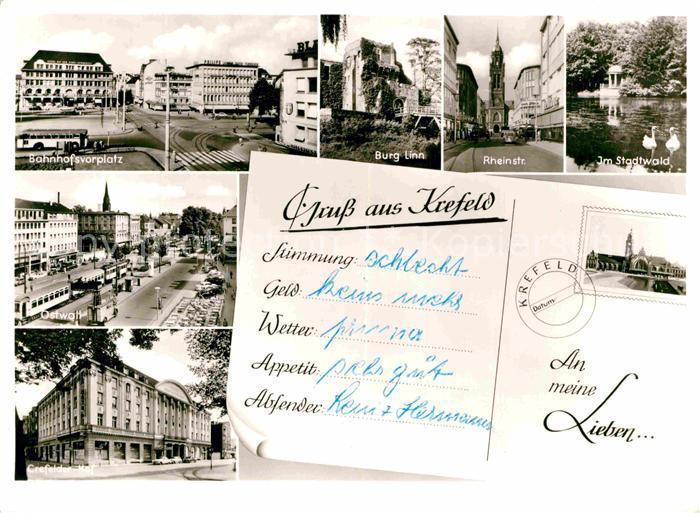 Bahnhofsvorplatz
Burg Linn
Rheinstr.
Im Stadtwald
Gruß aus Krefeld
Stimmung: schlecht
Geld: keins mehr
Wetter: prima
Appetit: sehr gut
Absender: Heinz Hermann
KREFELD
Datum:
An
meine
Lieben...
Ostwall
Crefelder Hof